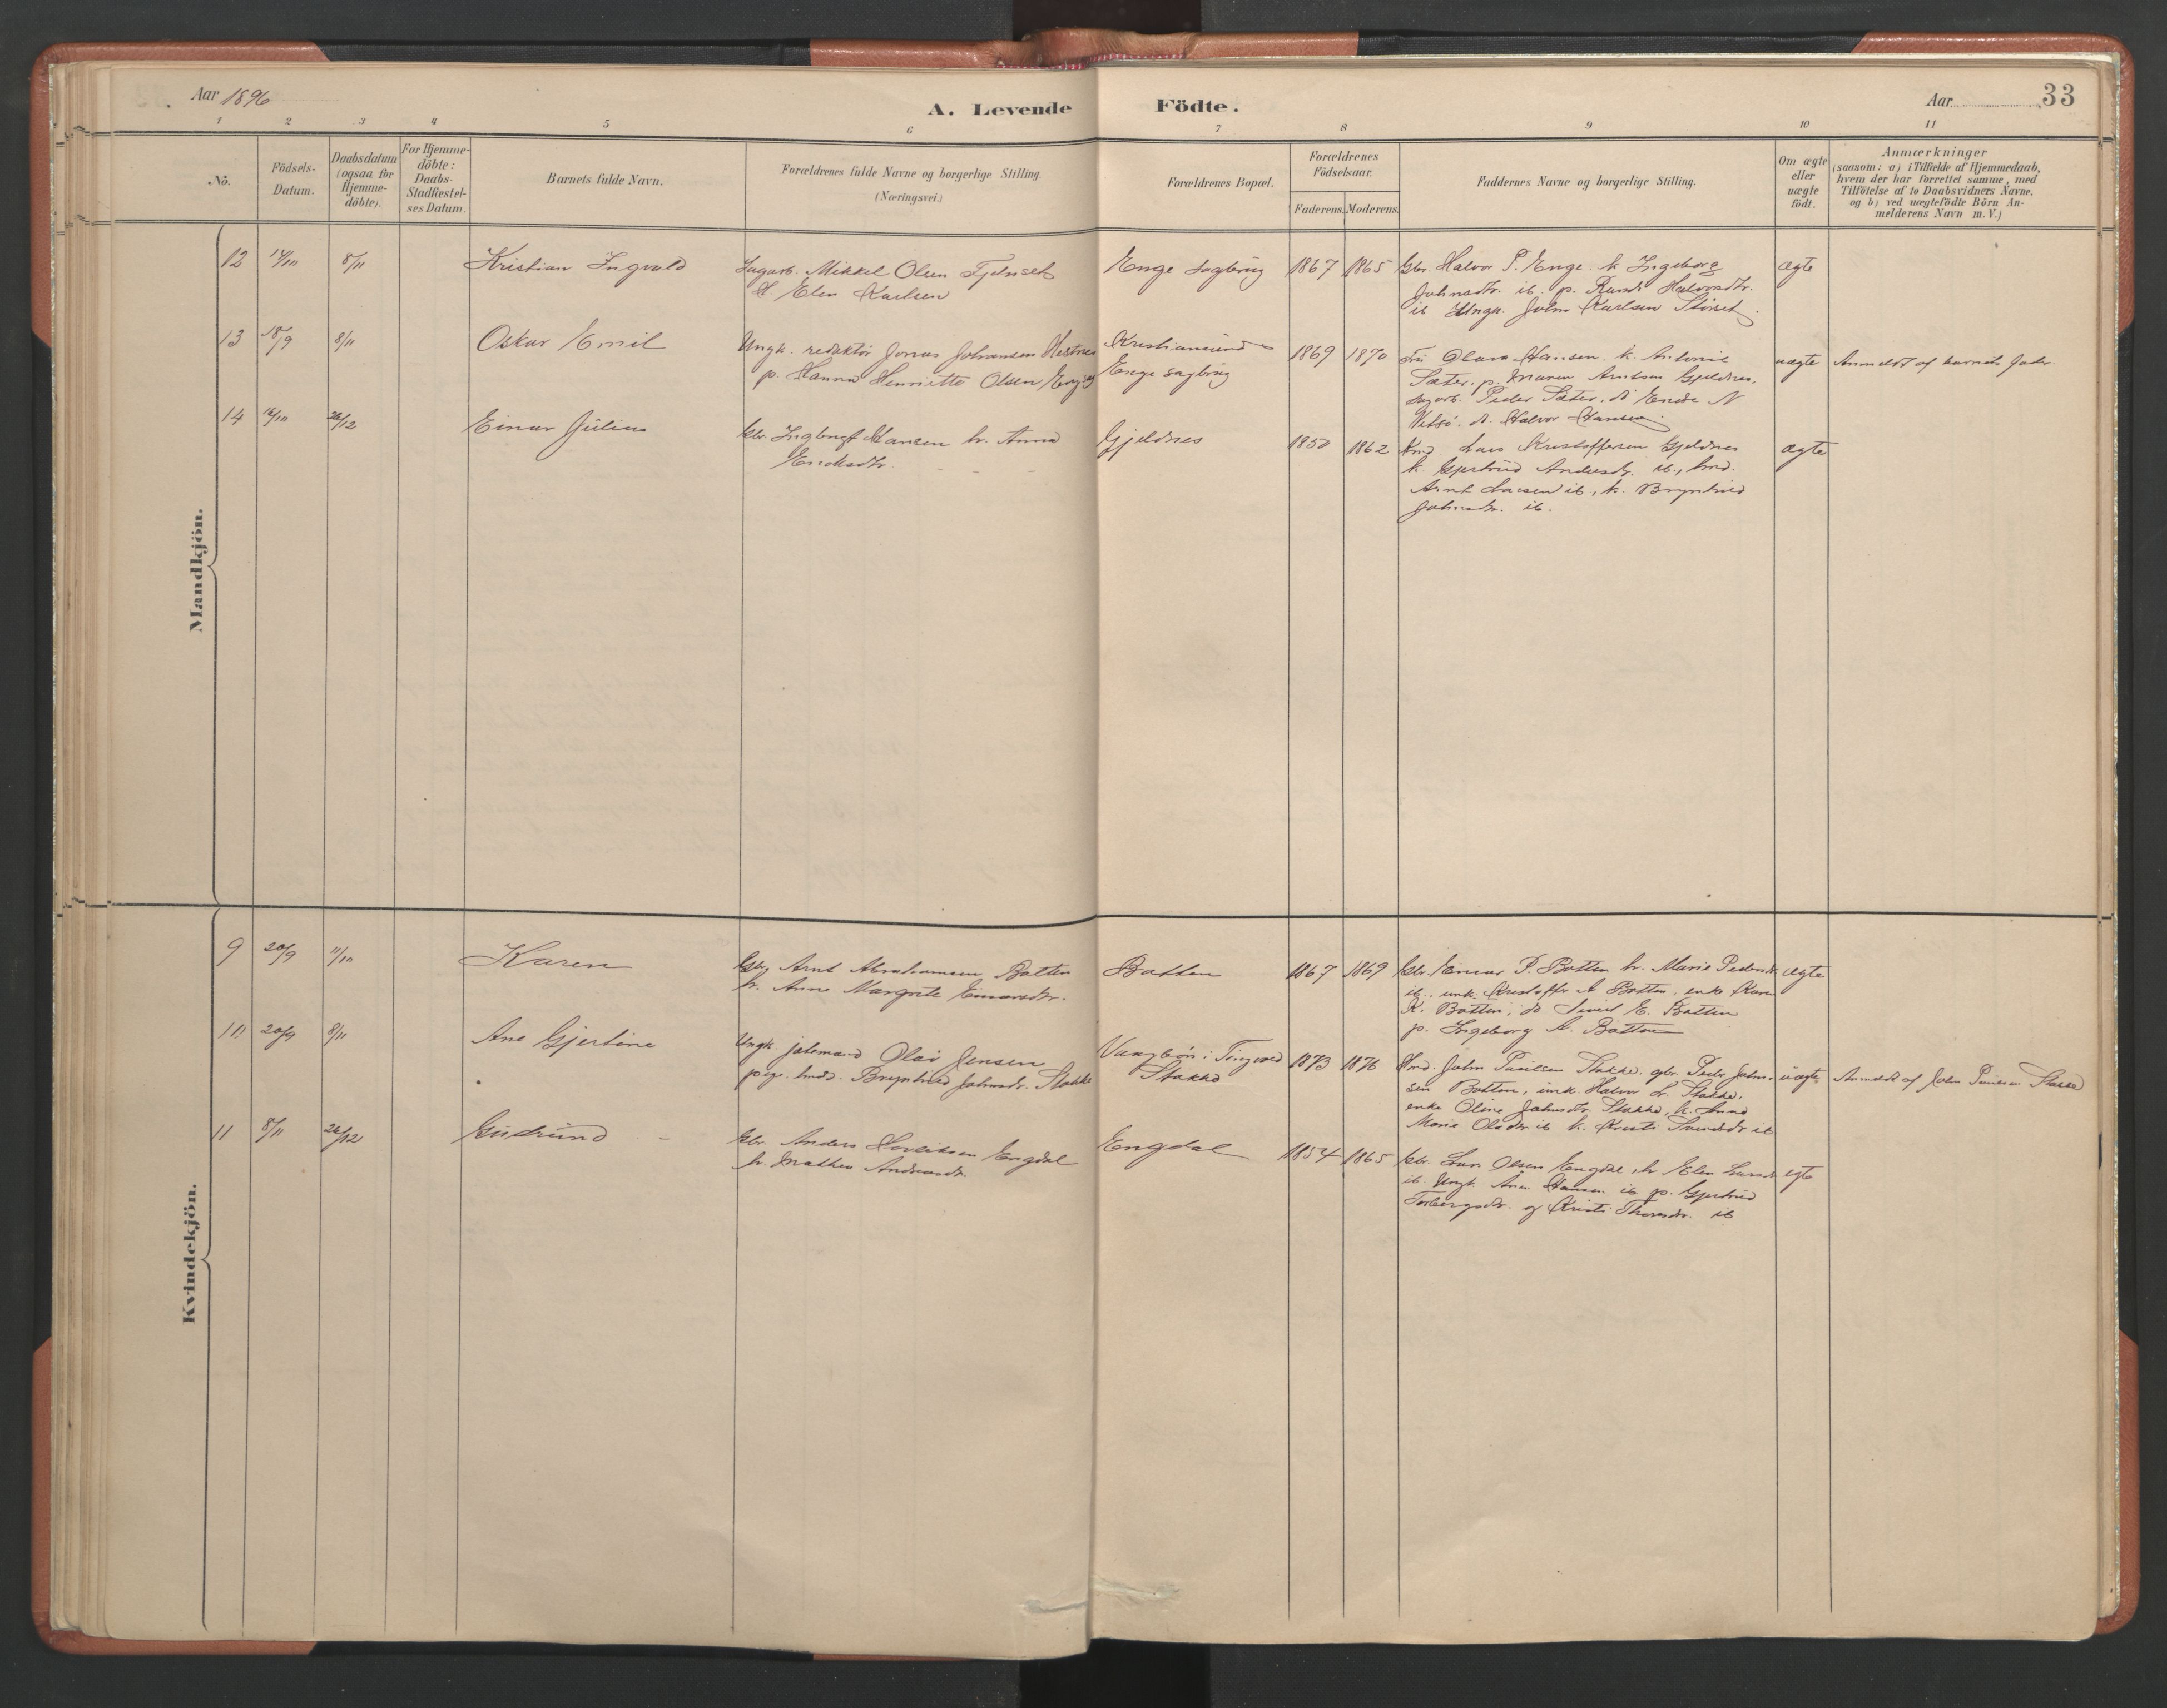 Aar 1896
A. Levende Födte.
Aar 33
1 2 3 4 5 6 7 8 9 10 11
No.
Födsels-
Datum.
Daabsdatum
(ogsaa for
Hjemme-
döbte).
For Hjemme-
döbte:
Daabs-
Stadfæstel-
ses Datum.
Barnets fulde Navn.
Forældrenes fulde Navne og borgerlige Stilling.
(Næringsvei.)
Forældrenes Bopæl.
Forældrenes
Födselsaar.
Faderens. Moderens.
Faddernes Navne og borgerlige Stilling.
Om ægte
eller
uægte
födt.
Anmærkninger
(saasom: a) i Tilfælde af Hjemmedaab,
hvem der har forrettet samme, med
Tilföielse af to Daabsvidners Navne.
og b) ved uægtefödte Börn An-
melderens Navn m. V.)
Mandkjön.
12 8/11 Kristian Ingvald
Mikkel Olsen Tjelnset
H. Elen Karlsen
Enge sagbrug
1867 1865
Gbr. Halvor P. Enge. k. Ingeborg
Johnsdtr. ib. p. Halvorsdtr.
ib Ungk. John Karlsen Störset
ægte
13 18/9 8/11 Oskar Emil
Ungk. redaktör Jonas Johansen Hestnes
p. Hanna Henriette Olsen Enge
Kristiansund
Enge sagbrug
1869 1870
Olava Hansen. k. Antonie
Sæter. p. Maren Arntsen Gjeldnes,
Peder Sæter,
Halvor Hansen.
uægte
Anmeldt af barnets fader.
14 26/12 Einar Julius
Gbr. Ingbrigt Hansen h. Anna
Ericksdtr.
Gjeldnes
1850 1862
Lars Kristoffersen Gjeldnes
k. Gjertrud Andersdtr. ib., hmd.
Arnt Larsen ib, k. Bryntrud
Johnsdtr. ib.
ægte
Kvindekjön.
9 20/9 11/10 Karen
Gbr. Arnt Abrahamsen Botten
h. Anne Margrete Einarsdtr.
Botten
1867 1869
Gbr. Einar P. Botten h. Marie Pedersdtr.
ib., unk. Kristoffer A Botten, enke Karen
K. Botten, do Sivert E. Botten
p. Ingeborg A. Botten
ægte
10 20/9 8/11 Ane Gjertine
Ungk. Olav Jensen
pige. Bryntrud Johnsdtr. Stokke
Vaagbön i Tingvold
Stokke
1873 1876
Hmd. John Paulsen Stokke. gbr. Peder John-
sen Botten, unk. Halvor Stokke.
enke Oline Johnsdtr. Stokke, k. Anne
Marie Olsdtr ib k. Kristi ib
uægte
Anmeldt af John Paulsen Stokke
11 8/11 26/12 Gudrund
Gbr. Anders Engdal
h. Mathea Andreasdtr.
Engdal
1854 1865
Gbr. Lars Olsen Engdal, h. Elen Larsdtr.
ib. Ungk. Hansen ib p. Gjertrud
Torbergsdtr. og Kristi Thoresdtr. ib
egte